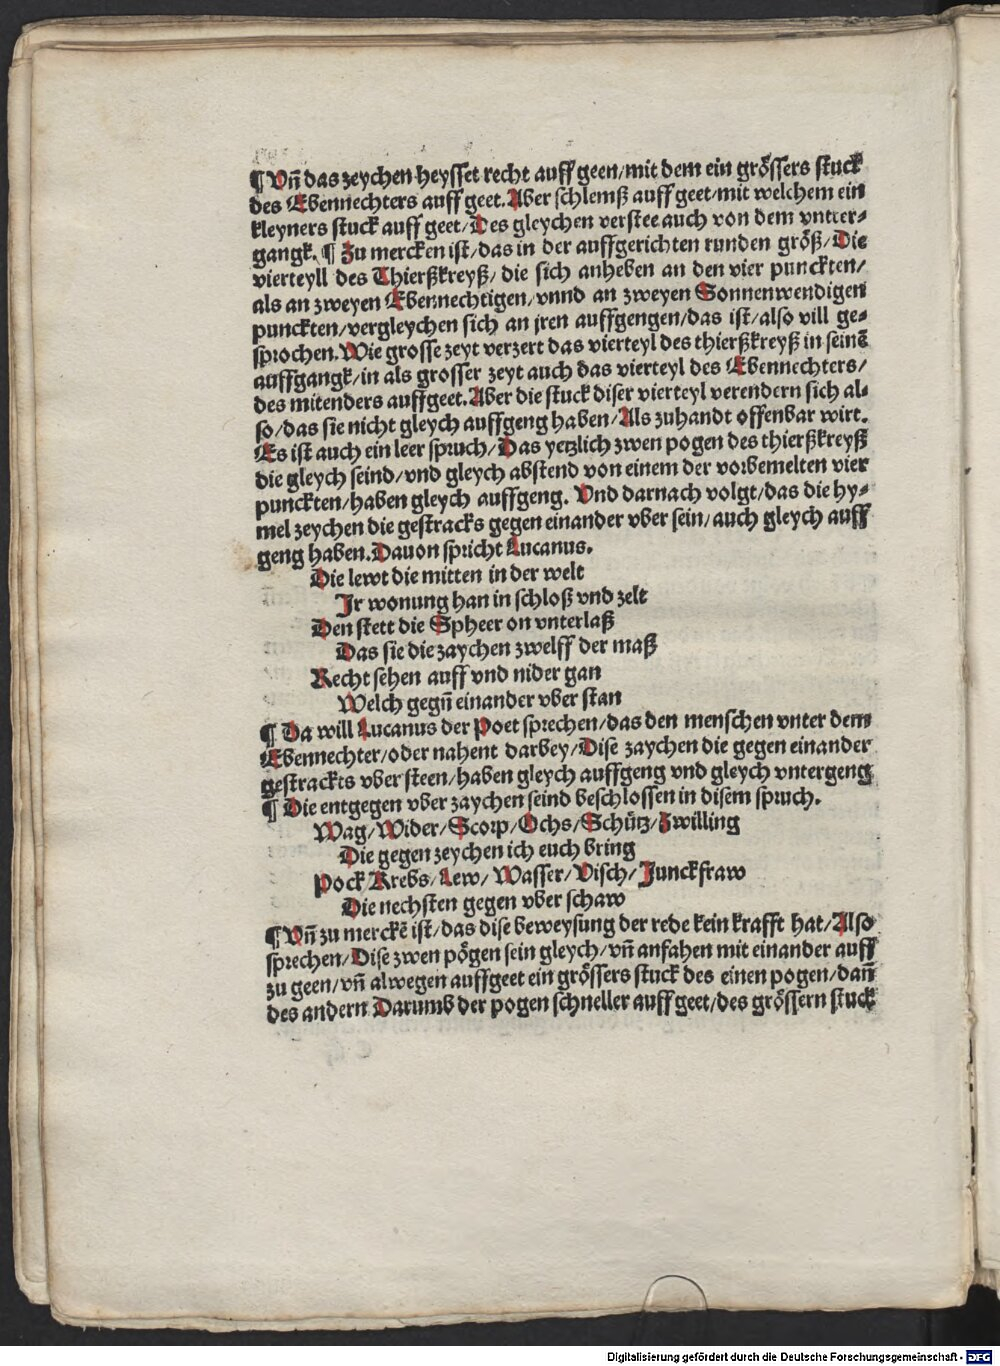 ¶ Vñ das zeychen heysset recht auff geen/mit dem ein grössers stuck
des Ebennechters auff geet. Aber schlemß auff geet/mit welchem ein
kleyners stuck auff geet/Des gleychen verstee auch von dem vnter⸗
gangk. ¶ Zu mercken ist/das in der auffgerichten runden größ/Die
vierteyll des Thierßkreyß/ die sich anheben an den vier punckten/
als an zweyen Ebennechtigen/vnnd an zweyen Sonnenwendigen
punckten/vergleychen sich an jren auffgengen/das ist/also vill ge⸗
sprochen. Wie grosse zeyt verzert das vierteyl des thierßkreyß in seinē
auffgangk/in als grosser zeyt auch das vierteyl des Ebennechters/
des mitenders auffgeet. Aber die stuck diser vierteyl verendern sich al⸗
so/das sie nicht gleych auffgeng haben/Als zuhandt offenbar wirt.
Es ist auch ein leer spruch/Das yetzlich zwen pogen des thierßkreyß
die gleych seind/vnd gleych abstend von einem der vorbemelten vier
punckten/haben gleych auffgeng. Vnd darnach volgt/das die hy⸗
mel zeychen die gestracks gegen einander vber sein/auch gleych auff
geng haben. Dauon spricht Lucanus.
Die lewt die mitten in der welt
Jr wonung han in schloß vnd zelt
Den stett die Spheer on vnterlaß
Das sie die zaychen zwelff der maß
Recht sehen auff vnd nider gan
Welch gegñ einander vber stan
¶ Da will Lucanus der Poet sprechen/das den menschen vnter dem
Ebennechter/oder nahent darbey/Dise zaychen die gegen einander
gestrackts vber steen/haben gleych auffgeng vnd gleych vntergeng
¶ Die entgegen vber zaychen seind beschlossen in disem spruch.
Wag/Wider/Scorp/Ochs/Schütz/Zwilling
Die gegen zeychen ich euch bring
Pock/Krebs/Lew/Wasser/Visch/Junckfraw
Die nechsten gegen vber schaw
¶ Vñ zu merckē ist/das dise beweysung der rede kein krafft hat/Also
sprechen/Dise zwen pögen sein gleych/vñ anfahen mit einander auff
zu geen/vñ alwegen auffgeet ein grössers stuck des einen pogen/dañ
des andern Darumb der pogen schneller auff geet/des grössern stuck
Digitalisierung gefördert durch die Deutsche Forschungsgemeinschaft - DFG